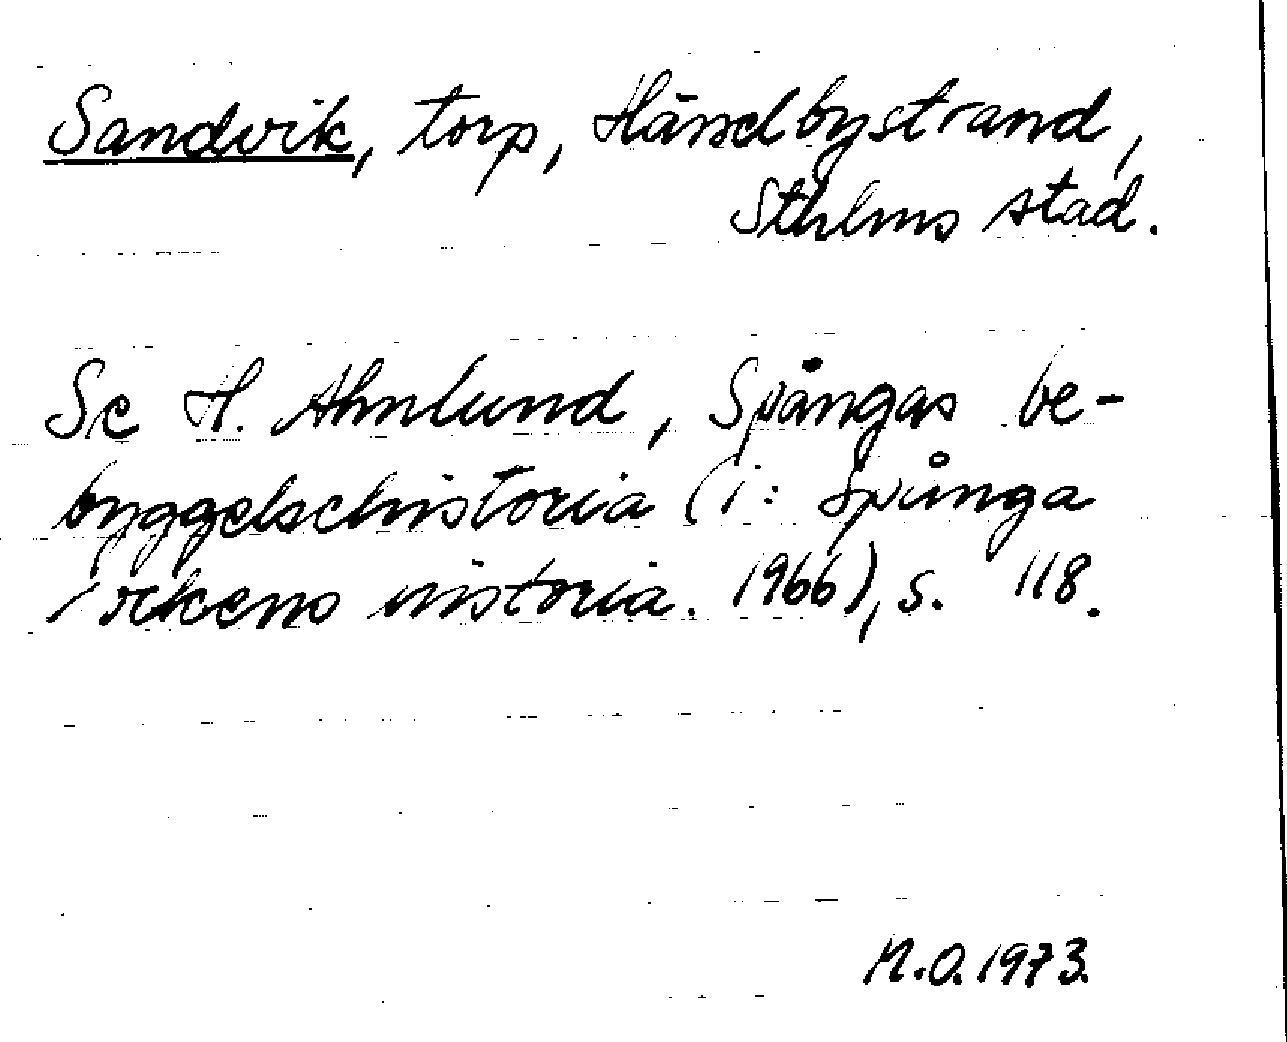 Sandvik, torp, Hässelbystrand,
Sthlms stad.
Se H. Ahnlund, Spångas be-
byggelsehistoria (i: Spånga
sockens historia. 1966), s. 118.
M.O. 1973.